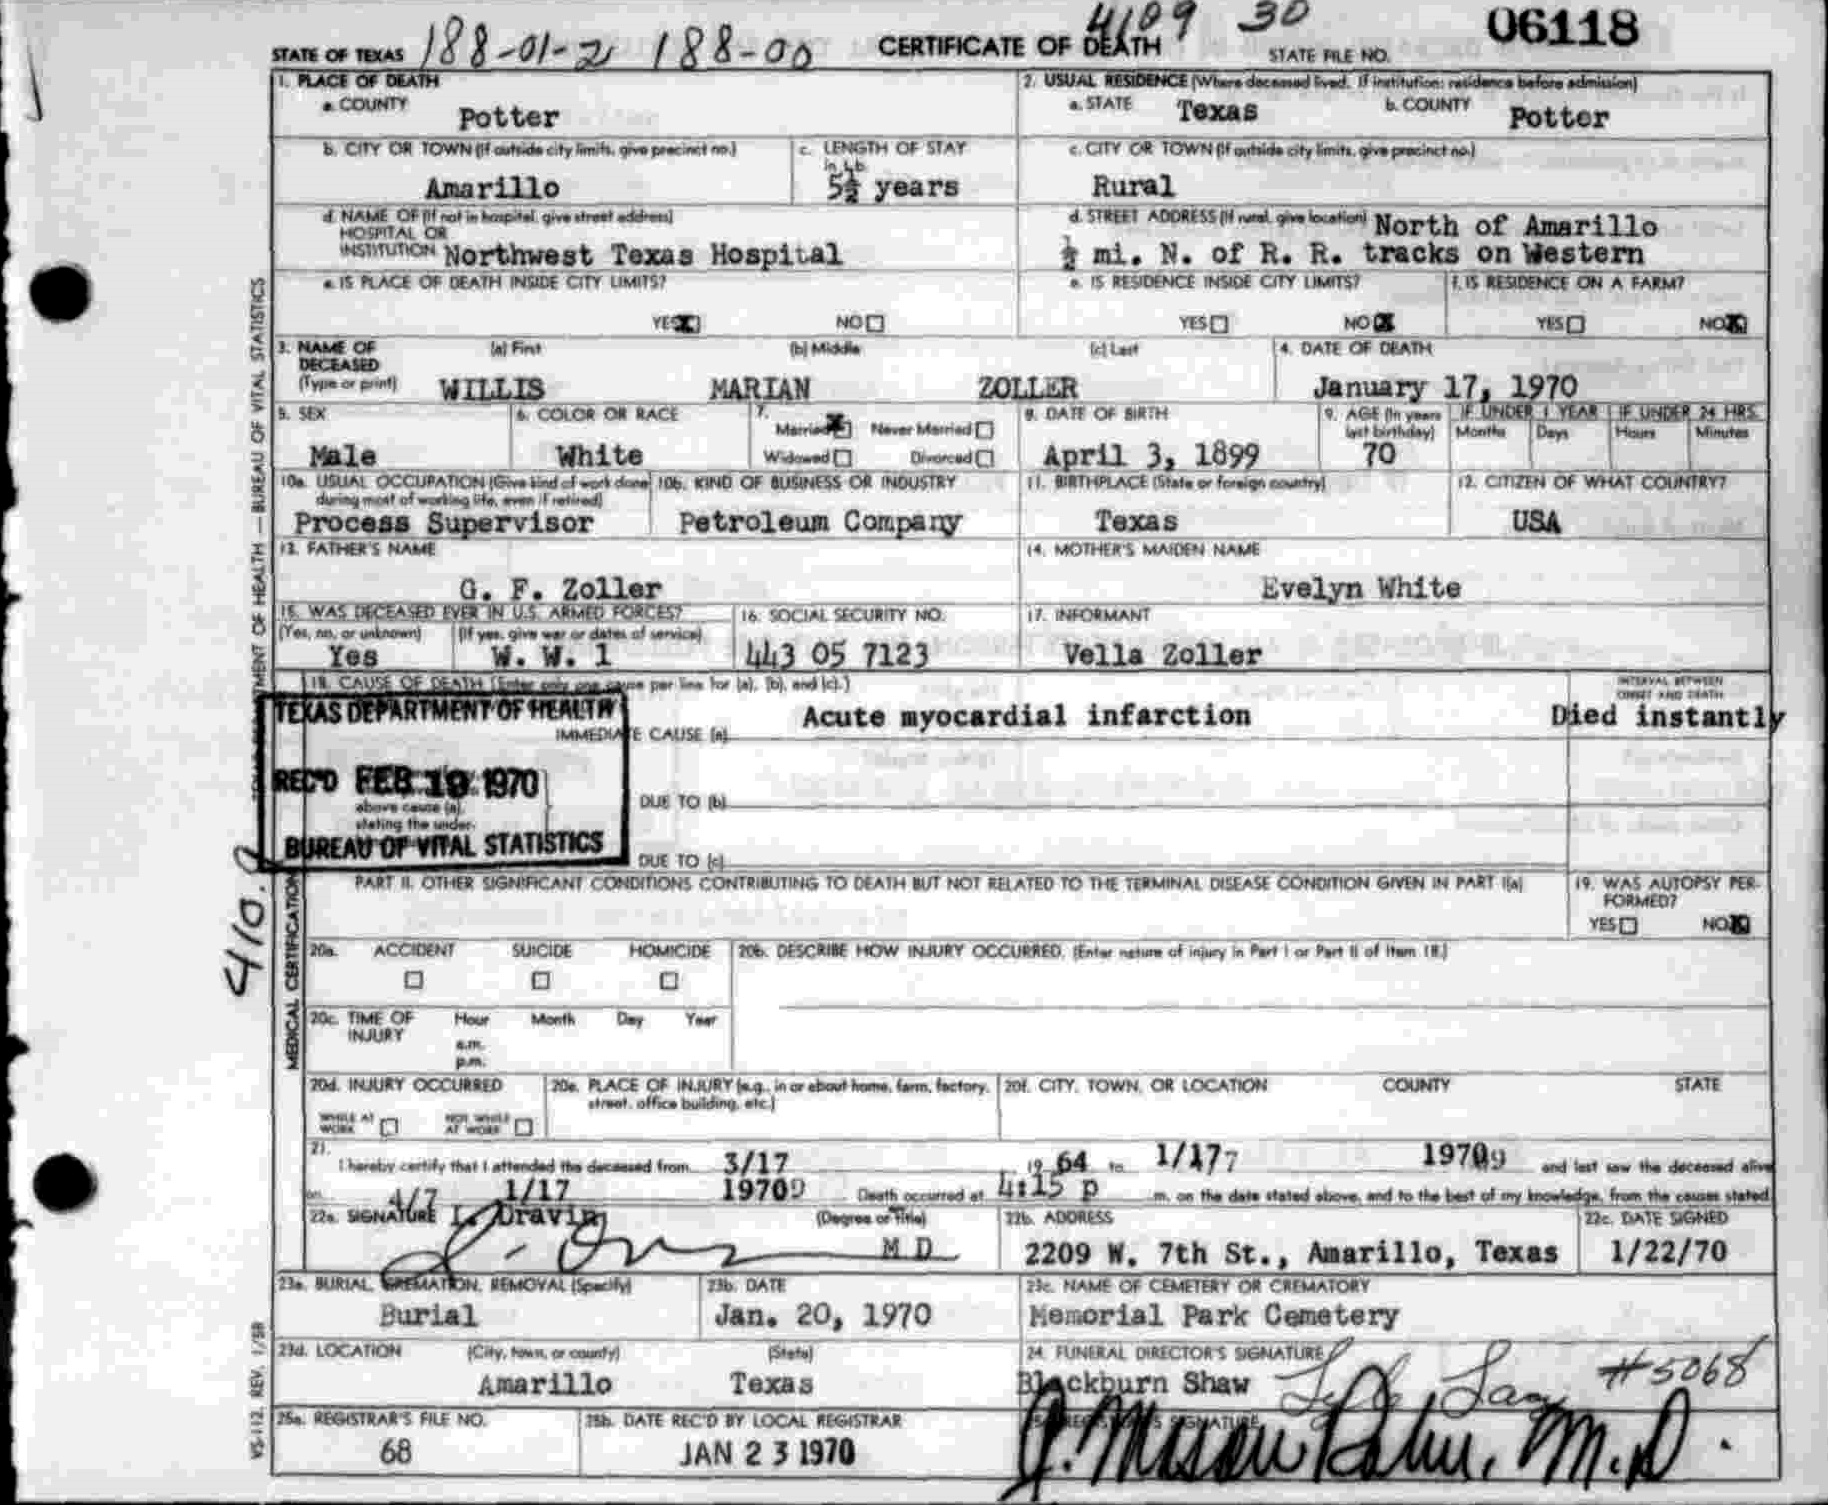 4109 30 06118
STATE OF TEXAS 188-01-2 188-00 CERTIFICATE OF DEATH STATE FILE NO.
1. PLACE OF DEATH
a. COUNTY
Potter
2. USUAL RESIDENCE (Where deceased lived. If institution: residence before admission)
a. STATE Texas b. COUNTY Potter
b. CITY OR TOWN (If outside city limits, give precinct no.)
Amarillo
c. LENGTH OF STAY
in 1b
5½ years
c. CITY OR TOWN (If outside city limits, give precinct no.)
Rural
d. NAME OF (If not in hospital, give street address)
HOSPITAL OR
INSTITUTION Northwest Texas Hospital
d. STREET ADDRESS (If rural, give location) North of Amarillo
½ mi. N. of R. R. tracks on Western
e. IS PLACE OF DEATH INSIDE CITY LIMITS?
YES NO
e. IS RESIDENCE INSIDE CITY LIMITS?
YES NO
f. IS RESIDENCE ON A FARM?
YES NO
3. NAME OF
DECEASED
(Type or print)
(a) First (b) Middle (c) Last
WILLIS MARIAN ZOLLER
4. DATE OF DEATH
January 17, 1970
5. SEX
Male
6. COLOR OR RACE
White
7.
Married Never Married
Widowed Divorced
8. DATE OF BIRTH
April 3, 1899
9. AGE (In years
last birthday)
70
IF UNDER 1 YEAR IF UNDER 24 HRS.
Months Days Hours Minutes
10a. USUAL OCCUPATION (Give kind of work done
during most of working life, even if retired)
Process Supervisor
10b. KIND OF BUSINESS OR INDUSTRY
Petroleum Company
11. BIRTHPLACE (State or foreign country)
Texas
12. CITIZEN OF WHAT COUNTRY?
USA
13. FATHER'S NAME
G. F. Zoller
14. MOTHER'S MAIDEN NAME
Evelyn White
15. WAS DECEASED EVER IN U.S. ARMED FORCES?
(Yes, no, or unknown) (If yes, give war or dates of service)
Yes W. W. 1
16. SOCIAL SECURITY NO.
443 05 7123
17. INFORMANT
Vella Zoller
18. CAUSE OF DEATH (Enter only one cause per line for (a), (b), and (c).)
INTERVAL BETWEEN
ONSET AND DEATH
TEXAS DEPARTMENT OF HEALTH
IMMEDIATE CAUSE (a) Acute myocardial infarction Died instantly
REC'D FEB 19 1970
above cause (a),
stating the under-
DUE TO (b)
BUREAU OF VITAL STATISTICS
DUE TO (c)
PART II. OTHER SIGNIFICANT CONDITIONS CONTRIBUTING TO DEATH BUT NOT RELATED TO THE TERMINAL DISEASE CONDITION GIVEN IN PART I(a)
19. WAS AUTOPSY PER-
FORMED?
YES NO
20a. ACCIDENT SUICIDE HOMICIDE
20b. DESCRIBE HOW INJURY OCCURRED. (Enter nature of injury in Part I or Part II of Item 18.)
20c. TIME OF
INJURY
Hour Month Day Year
a.m.
p.m.
20d. INJURY OCCURRED
WHILE AT
WORK
NOT WHILE
AT WORK
20e. PLACE OF INJURY (e.g., in or about home, farm, factory,
street, office building, etc.)
20f. CITY, TOWN, OR LOCATION COUNTY STATE
21.
I hereby certify that I attended the deceased from 3/17 19 64 to 1/17 1970 and last saw the deceased alive
on 1/17 1970 Death occurred at 4:15 p m. on the date stated above, and to the best of my knowledge, from the causes stated.
22a. SIGNATURE (Degree or Title)
M D
22b. ADDRESS
2209 W. 7th St., Amarillo, Texas
22c. DATE SIGNED
1/22/70
23a. BURIAL, CREMATION, REMOVAL (Specify)
Burial
23b. DATE
Jan. 20, 1970
23c. NAME OF CEMETERY OR CREMATORY
Memorial Park Cemetery
23d. LOCATION (City, town, or county) (State)
Amarillo Texas
24. FUNERAL DIRECTOR'S SIGNATURE
Blackburn Shaw #5068
25a. REGISTRAR'S FILE NO.
68
25b. DATE REC'D BY LOCAL REGISTRAR
JAN 23 1970
REGISTRAR'S SIGNATURE
M.D.
TEXAS DEPARTMENT OF HEALTH — BUREAU OF VITAL STATISTICS
MEDICAL CERTIFICATION
410.
VS-112, REV. 1/58